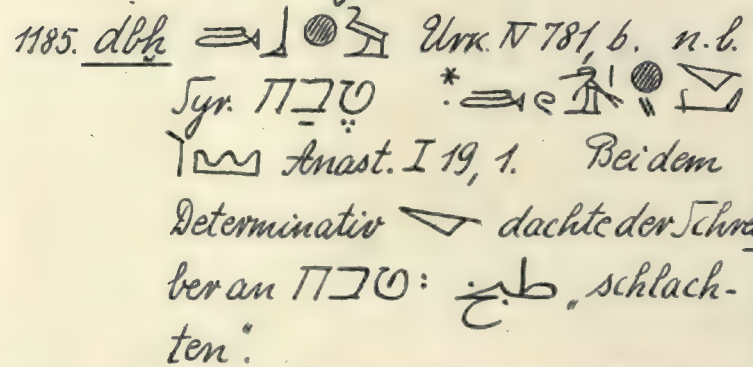 1185. dbḫ Urk. IV 781, 6. n. l.
Syr. טֶבַח *
Anast. I 19, 1. Bei dem
Determinativ dachte der Schre
ber an טבח: طبخ „schlach-
ten“.